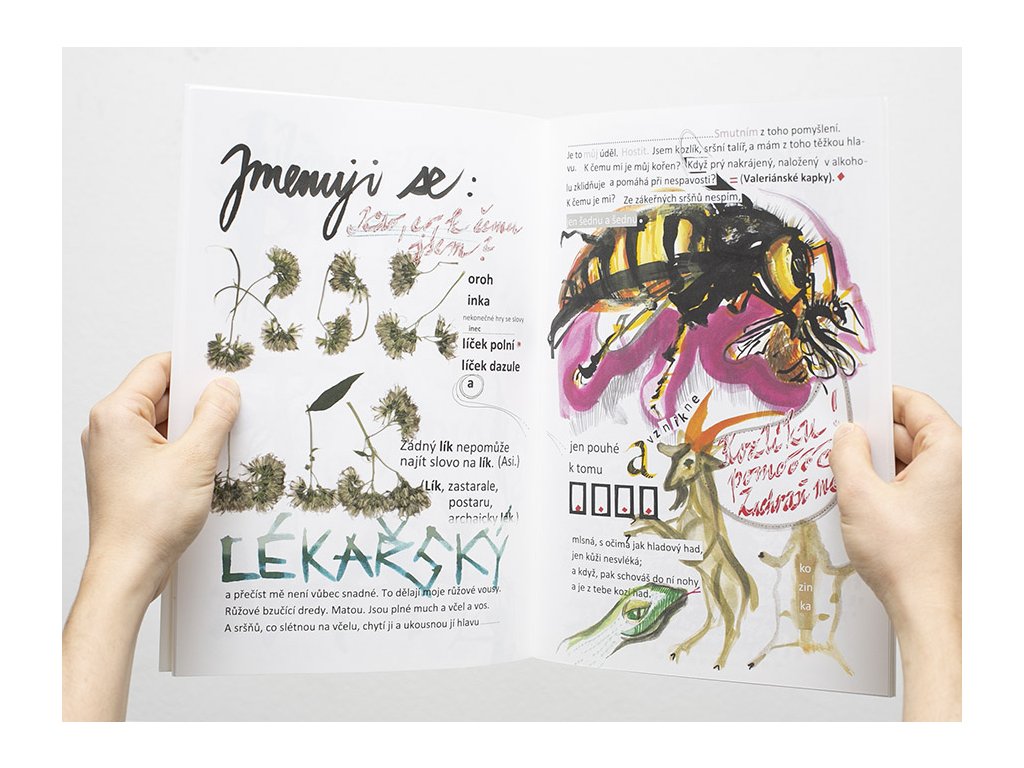 Jmenuji se:
Kdo, co, k čemu
jsem?
KOZ
oroh
inka
nekonečné hry se slovy
inec
líček polní *
líček dazule
a
LÍK
Žádný lík nepomůže
najít slovo na lík. (Asi.)
(Lík, zastarale,
postaru,
archaicky lék.)
LÉKAŘSKÝ
a přečíst mě není vůbec snadné. To dělají moje růžové vousy.
Růžové bzučící dredy. Matou. Jsou plné much a včel a vos.
A sršňů, co slétnou na včelu, chytí ji a ukousnou jí hlavu
Smutním z toho pomyšlení.
Je to můj úděl. Hostit. Jsem kozlík, sršní talíř, a mám z toho těžkou hla-
vu. K čemu mi je můj kořen? Když prý nakrájený, naložený v alkoho-
lu zklidňuje a pomáhá při nespavosti? = (Valeriánské kapky).
K čemu je mi? Ze zákeřných sršňů nespím,
jen šednu a šednu.
jen pouhé a vznikne
k tomu
Kozlíku
pomóóó
mlsná, s očima jak hladový had,
jen kůži nesvléká;
a když, pak schováš do ní nohy
a je z tebe kozí had.
ko
zin
ka